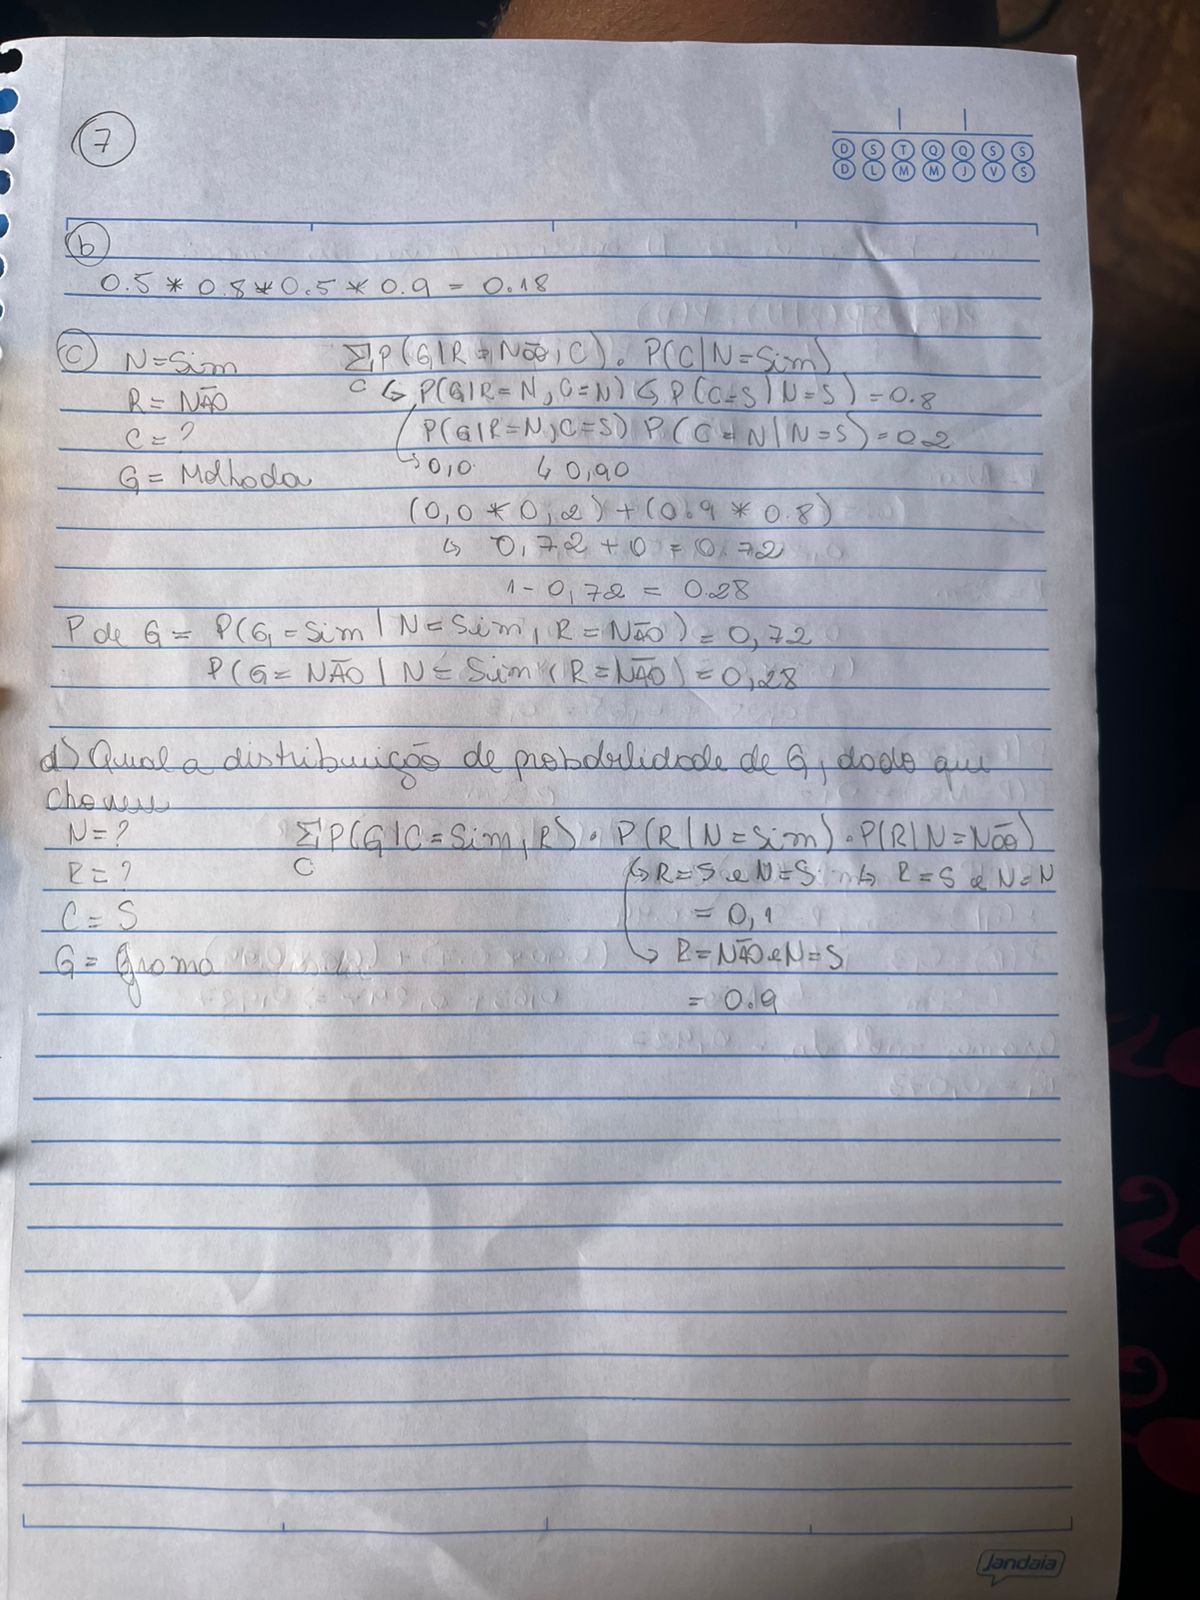 7
D S T Q Q S S
D L M M J V S
b
0.5 * 0.8 * 0.5 * 0.9 = 0.18
c N = Sim ΣP(G|R = Não, C). P(C|N=Sim)
C ↳ P(G|R=N, C=N) ↳ P(C=S|N=S) = 0.8
R = NÃO
P(G|R=N, C=S) P(C=N|N=S) = 0.2
C = ?
↳ 0,0 ↳ 0,90
G = Molhada
(0,0 * 0,2) + (0.9 * 0.8)
↳ 0,72 + 0 = 0.72
1 - 0,72 = 0.28
P de G = P(G = Sim | N = Sim, R = NÃO) = 0,72
P(G = NÃO | N = Sim, R = NÃO) = 0,28
d) Qual a distribuição de probabilidade de G, dado que
choveu
N = ? ΣP(G|C = Sim, R). P(R|N = Sim). P(R|N = Não)
C
R = ? ↳ R = S e N = S ↳ R = S e N = N
C = S = 0,1
G = Grama ↳ R = NÃO e N = S
= 0.9
Jandaia